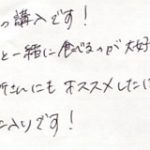 の購入です！
と一緒に食べるのが大好
さんにもオススメした
に入りです！